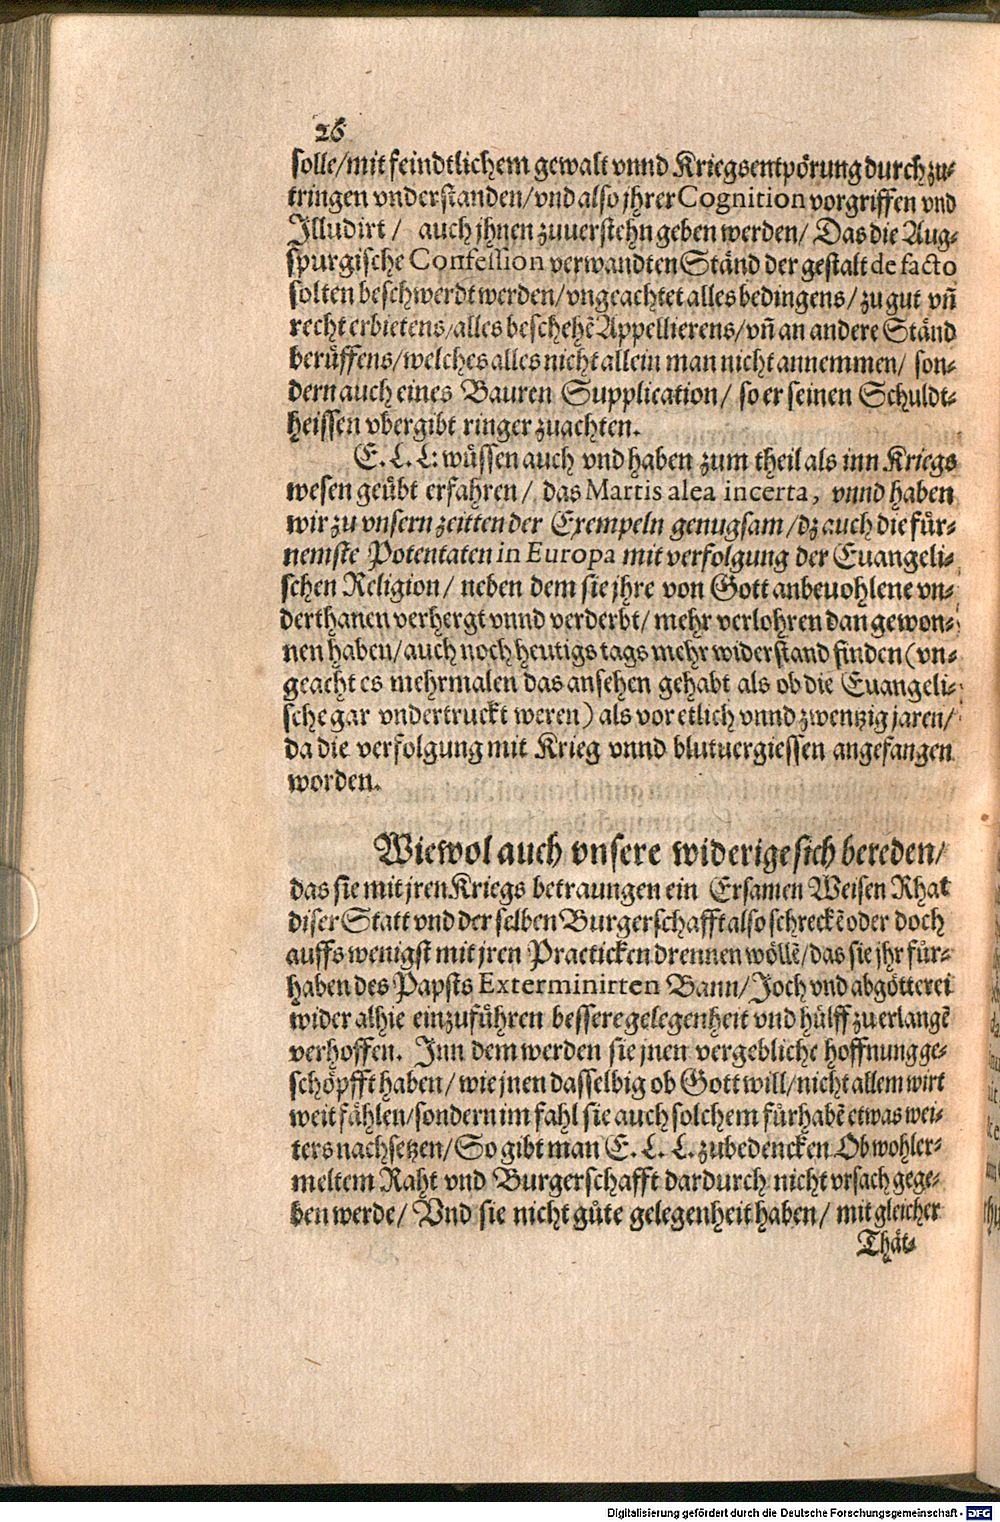 26
solle/mit feindtlichem gewalt vnnd Kriegsentpörung durch zu-
tringen vnderstanden/vnd also jhrer Cognition vorgriffen vnd
Illudirt / auch jhnen zuuerstehn geben werden/ Das die Aug-
spurgische Confession verwandten Ständ der gestalt de facto
solten beschwerdt werden/vngeachtet alles bedingens/ zu gut vñ
recht erbietens/alles beschehẽ Appellierens/vñ an andere Ständ
berüffens/welches alles nicht allein man nicht annemmen/ son-
dern auch eines Bauren Supplication/ so er seinen Schuldt-
heissen vbergibt ringer zuachten.
E. L. L: wüssen auch vnd haben zum theil als inn Kriegs
wesen geübt erfahren/ das Martis alea incerta, vnnd haben
wir zu vnsern zeitten der Exempeln genugsam/dz auch die für-
nemste Potentaten in Europa mit verfolgung der Euangeli-
schen Religion/ neben dem sie jhre von Gott anbeuohlene vn-
derthanen verhergt vnnd verderbt/ mehr verlohren dan gewon-
nen haben/auch noch heutigs tags mehr widerstand finden (vn-
geacht es mehrmalen das ansehen gehabt als ob die Euangeli-
sche gar vndertruckt weren) als vor etlich vnnd zwentzig jaren/
da die verfolgung mit Krieg vnnd blutuergiessen angefangen
worden.
Wiewol auch vnsere widerige sich bereden/
das sie mit jren Kriegs betraungen ein Ersamen Weisen Rhat
diser Statt vnd derselben Burgerschafft also schreckẽ oder doch
auffs wenigst mit jren Practicken drennen wöllẽ/das sie jhr für-
haben des Papsts Exterminirten Bann/ Joch vnd abgötterei
wider alhie einzuführen bessere gelegenheit vnd hülff zuerlangẽ
verhoffen. Inn dem werden sie jnen vergebliche hoffnung ge-
schöpfft haben/ wie jnen dasselbig ob Gott will/nicht allein wirt
weit fählen/sondern im fahl sie auch solchem fürhabẽ etwas wei-
ters nachsetzen/So gibt man E. L. L. zubedencken Ob wohler-
meltem Raht vnd Burgerschafft dardurch nicht vrsach gege-
ben werde/ Vnd sie nicht gůte gelegenheit haben/ mit gleicher
Thät-
Digitalisierung gefördert durch die Deutsche Forschungsgemeinschaft - DFG